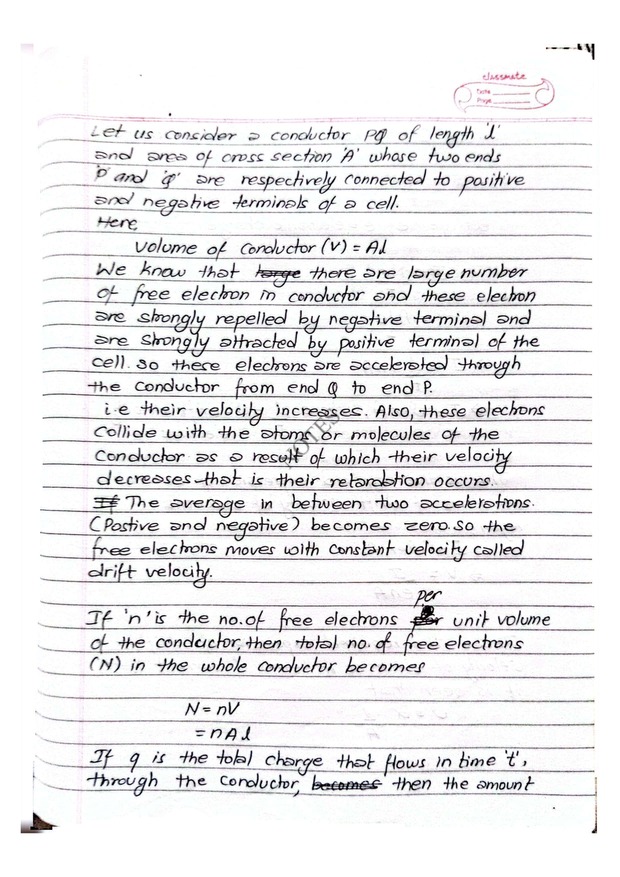 classmate
Date
Page
Let us consider a conductor PQ of length 'l'
and area of cross section 'A' whose two ends
'P' and 'Q' are respectively connected to positive
and negative terminals of a cell.
Here,
Volume of conductor (V) = Al
We know that large there are large number
of free electron in conductor and these electron
are strongly repelled by negative terminal and
are strongly attracted by positive terminal of the
cell. So these electrons are accelerated through
the conductor from end Q to end P.
i.e their velocity increases. Also, these electrons
Collide with the atoms or molecules of the
conductor as a result of which their velocity
decreases that is their retardation occurs.
NOTES
If The average in between two accelerations.
(Postive and negative) becomes zero. So the
free electrons moves with constant velocity called
drift velocity.
per
If 'n' is the no. of free electrons for unit volume
of the conductor, then total no. of free electrons
(N) in the whole conductor becomes
N = nV
= nAl
If q is the total charge that flows in time 't',
through the conductor, becomes then the amount